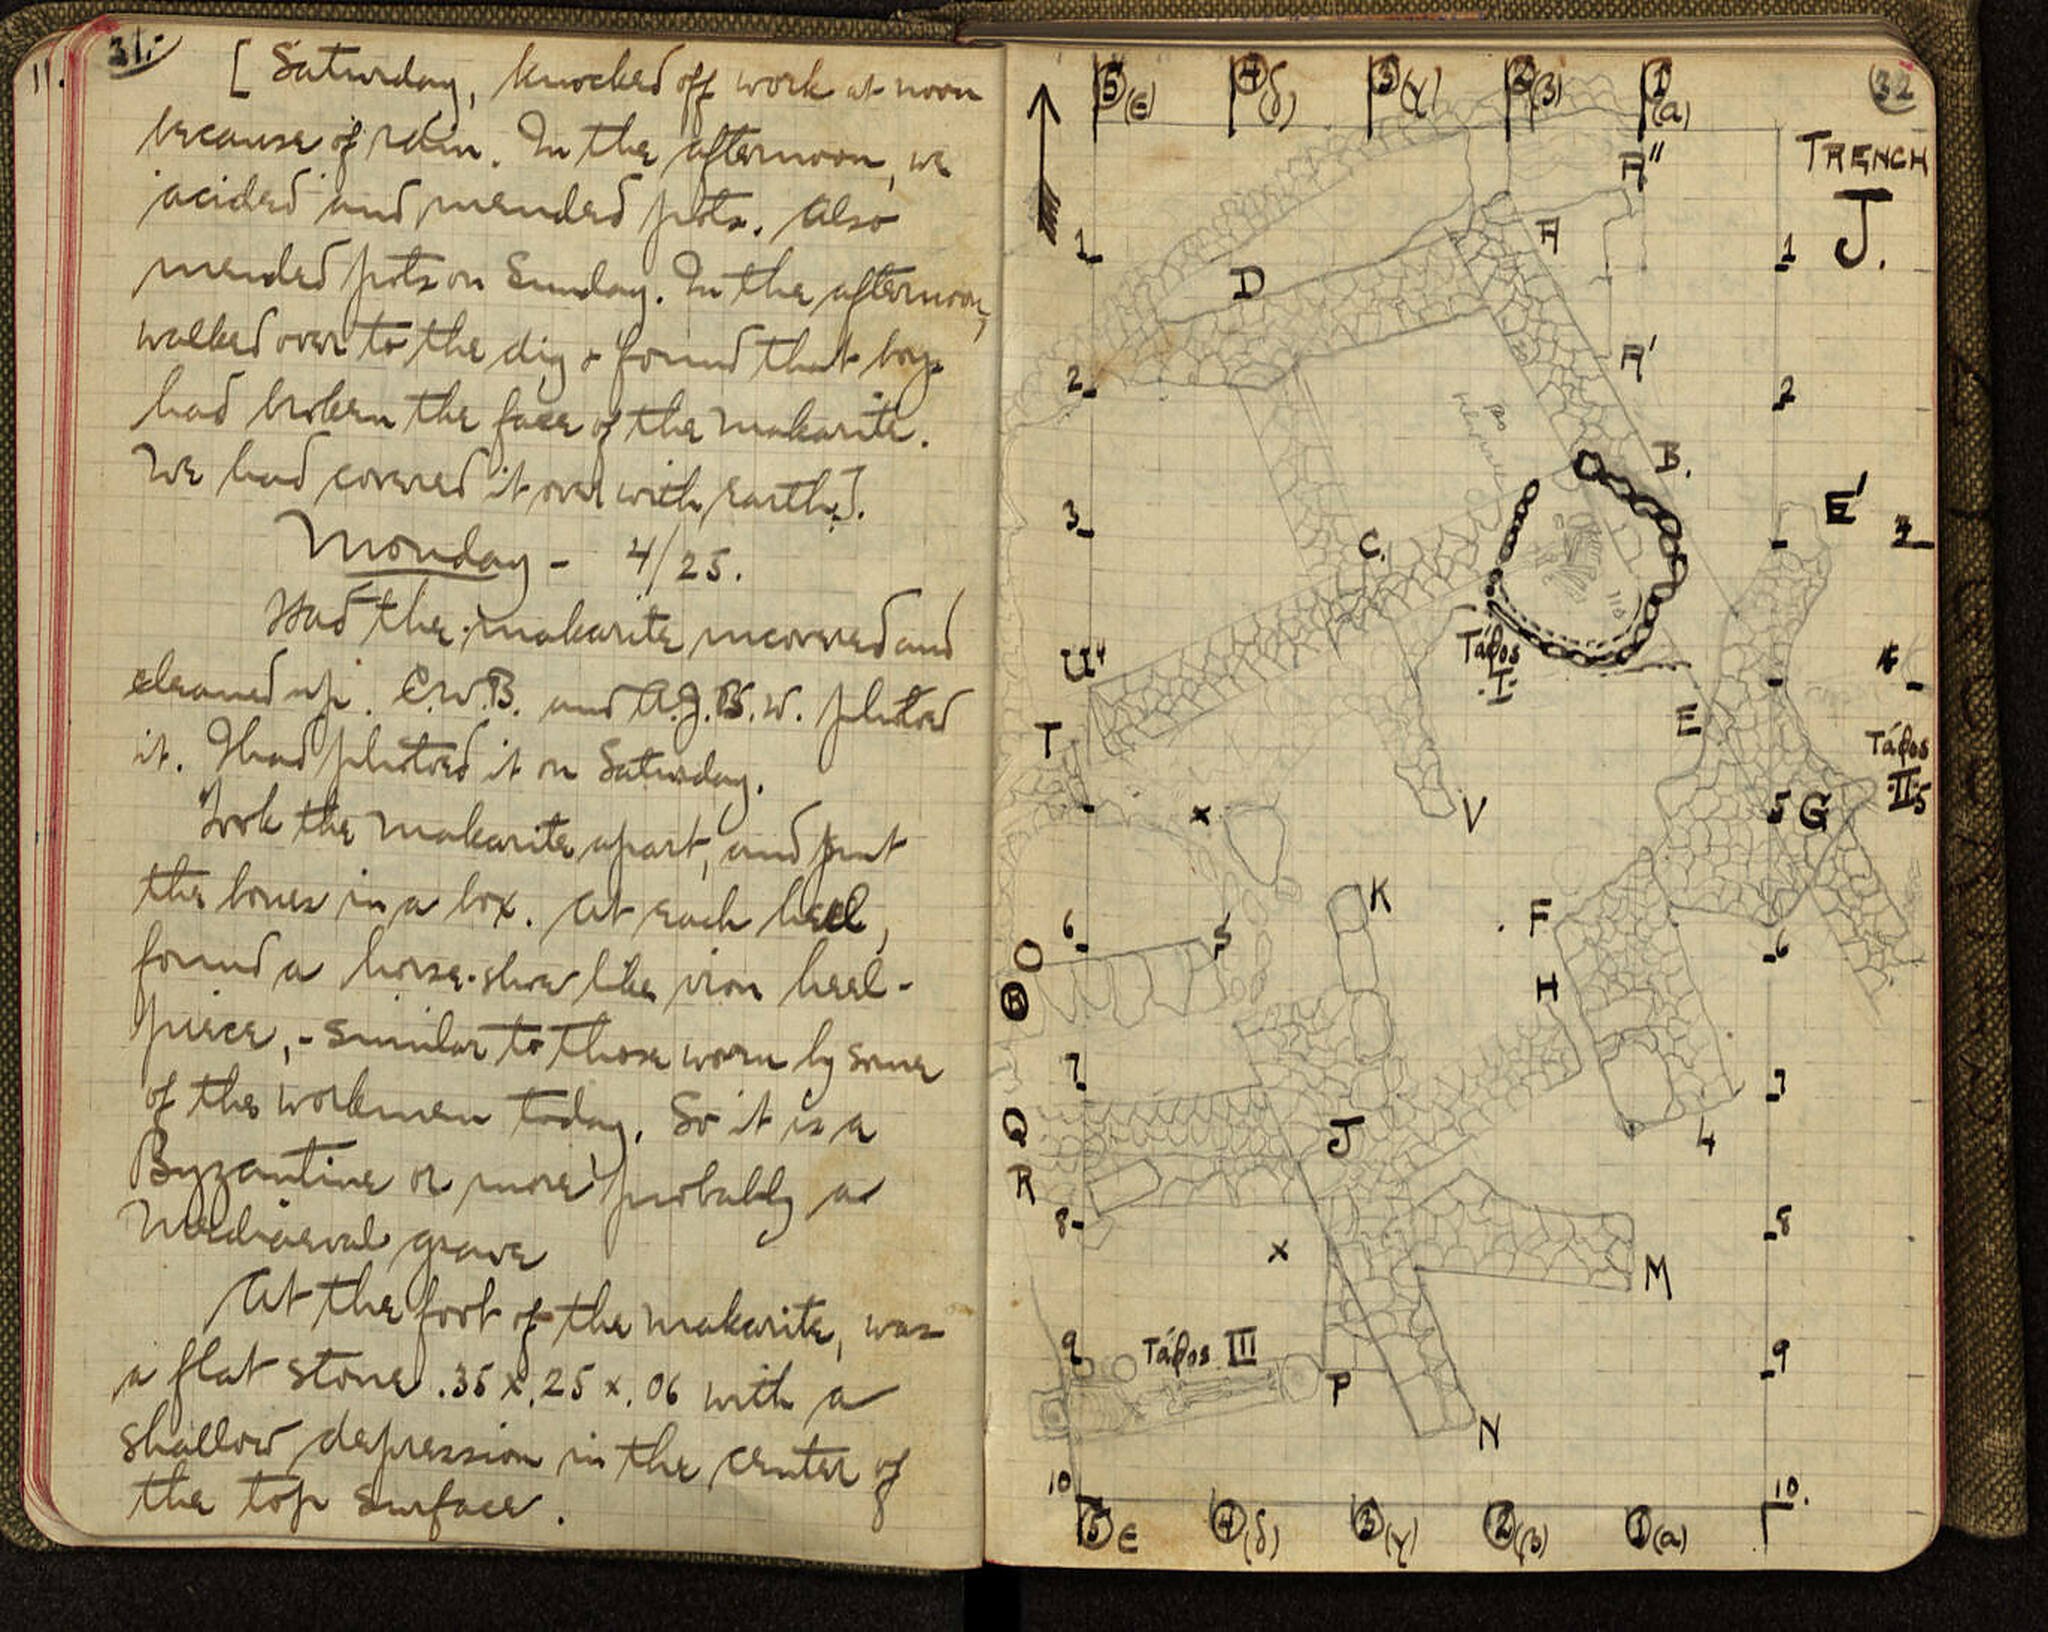 11.
31.-
[ Saturday, knocked off work at noon
because of rain. In the afternoon, we
'acided' and mended pots. Also
mended pots on Sunday. In the afternoon,
walked over to the dig & found that boys
had broken the face of the makarite.
We had covered it over with earth.].
Monday - 4/25.
Had the makarite uncovered and
cleaned up. C.W.B. and A.J.B.W. photoed
it. I had photoed it on Saturday.
Took the makarite apart, and put
the bones in a box. At each heel,
found a horse-shoe like iron heel-
piece, - similar to those worn by some
of the workmen today. So it is a
Byzantine or more probably a
Mediaeval grave
At the foot of the makarite, was
a flat stone .35 x .25 x .06 with a
shallow depression in the center of
the top surface.
32
5 (ε) 4 (δ) 3 (γ) 2 (β) 1 (α)
TRENCH
J.
A"
A
1 1
D
A'
2 2
B.
E'
3 3
C.
U 4 4
Τάφος
I
T
E
Τάφος
II
5 G 5
x
V
K
6 S F 6
O
H
7 7
Q
J
L
R
8 8
x
M
9 Τάφος III 9
P
N
10 10.
5 ε 4 (δ) 3 (γ) 2 (β) 1 (α)